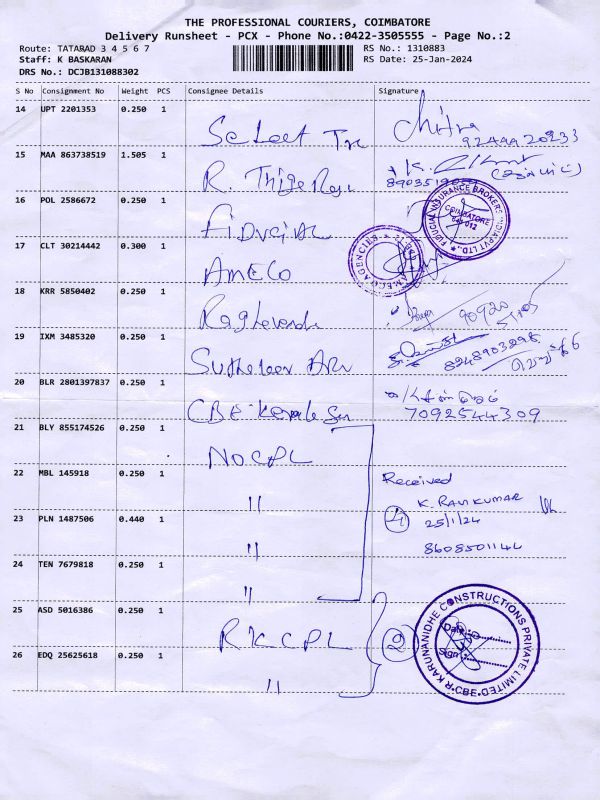 THE PROFESSIONAL COURIERS, COIMBATORE
Delivery Runsheet - PCX - Phone No.:0422-3505555 - Page No.:2
Route: TATABAD 3 4 5 6 7
RS No.: 1310883
Staff: K BASKARAN
RS Date: 25-Jan-2024
DRS No.: DCJB131088302
S No Consignment No Weight PCS Consignee Details Signature
14 UPT 2201353 0.250 1 Select Chitra
15 MAA 863738519 1.505 1 R.
16 POL 2586672 0.250 1
FIDUCIAL INSURANCE BROKERS INDIA PVT LTD.,
COIMBATORE
641 012
17 CLT 30214442 0.300 1 AMECO
AMECO AGENCIES
18 KRR 5850402 0.250 1
19 IXM 3485320 0.250 1
20 BLR 2801397837 0.250 1 CBE Kerala
7092544309
21 BLY 855174526 0.250 1 NOCPL
22 MBL 145918 0.250 1 "
Received
4 K. RAVIKUMAR
25/1/24
23 PLN 1487506 0.440 1 "
24 TEN 7679818 0.250 1 "
25 ASD 5016386 0.250 1 RKCPL 2
26 EDQ 25625618 0.250 1 "
R.KARUNANIDHE CONSTRUCTIONS PRIVATE LIMITED
CBE
Date:
Sign: